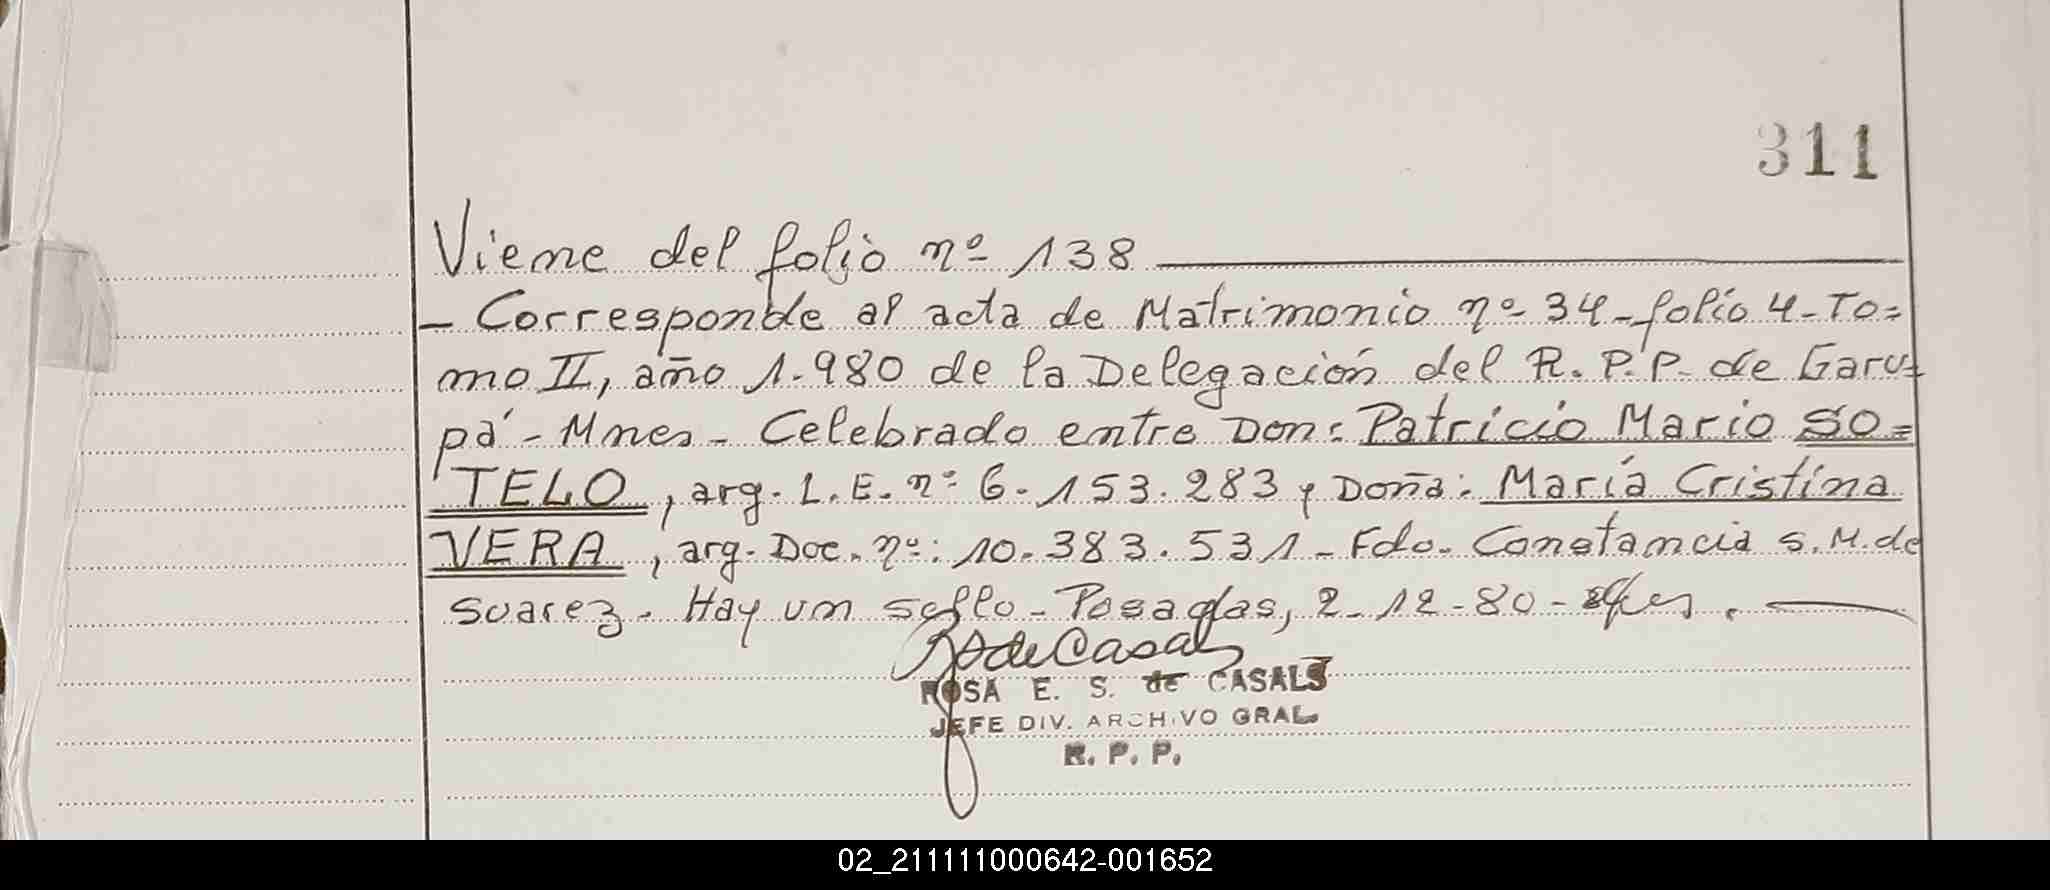 311
Viene del folio nº 138
- Corresponde al acta de Matrimonio nº 34 - folio 4 - To=
mo II, año 1.980 de la Delegación del R.P.P. de Garu=
pá - Mnes - Celebrado entre Don: Patricio Mario SO=
TELO, arg. L.E. nº 6.153.283 y Doña: María Cristina
VERA, arg. Doc. nº: 10.383.531 - Fdo. Constancia S.M. de
Suarez. Hay un sello - Posadas, 2-12-80 -
R S de Casals
ROSA E. S. de CASALS
JEFE DIV. ARCHIVO GRAL.
R. P. P.
02_211111000642-001652